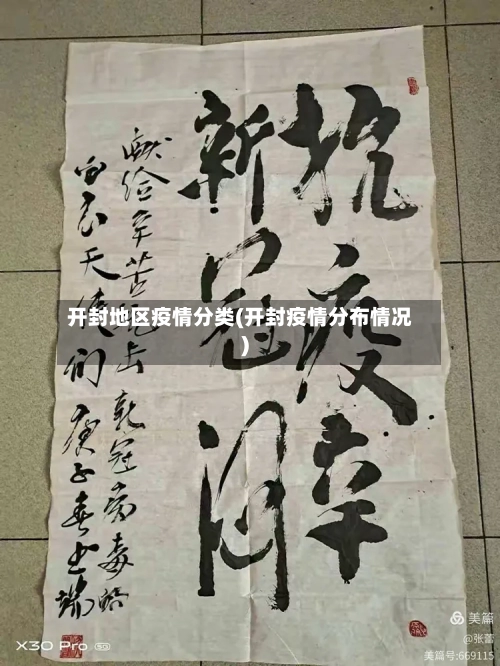 抗疫
新冠
献给辛苦 击 新冠病毒的
白衣天使们 庚子春
开封地区疫情分类(开封疫情分布情况
)
X30 Pro 5G
美篇
@张蕾
美篇号:669115